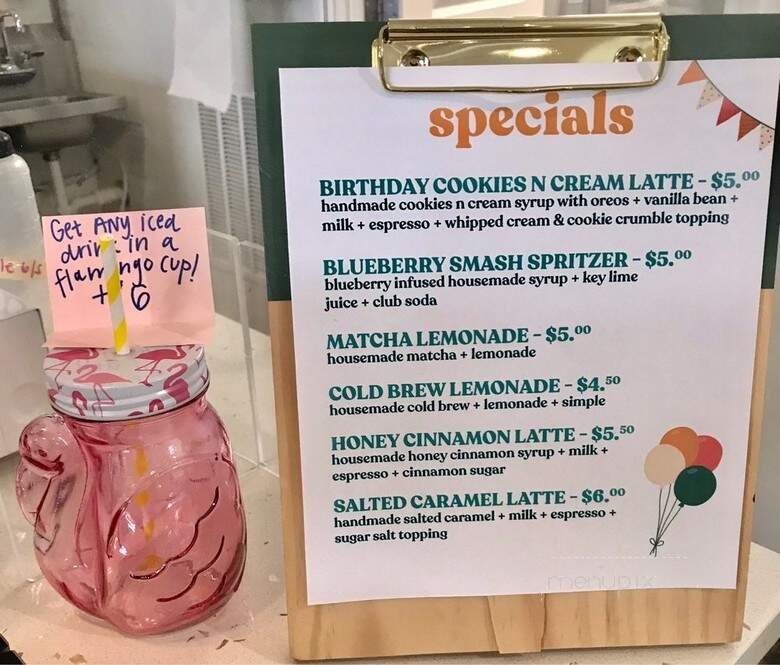 Get ANY iced
drink in a
flamingo cup!
+ $6
specials
BIRTHDAY COOKIES N CREAM LATTE - $5.00
handmade cookies n cream syrup with oreos + vanilla bean +
milk + espresso + whipped cream & cookie crumble topping
BLUEBERRY SMASH SPRITZER - $5.00
blueberry infused housemade syrup + key lime
juice + club soda
MATCHA LEMONADE - $5.00
housemade matcha + lemonade
COLD BREW LEMONADE - $4.50
housemade cold brew + lemonade + simple
HONEY CINNAMON LATTE - $5.50
housemade honey cinnamon syrup + milk +
espresso + cinnamon sugar
SALTED CARAMEL LATTE - $6.00
handmade salted caramel + milk + espresso +
sugar salt topping
menupix